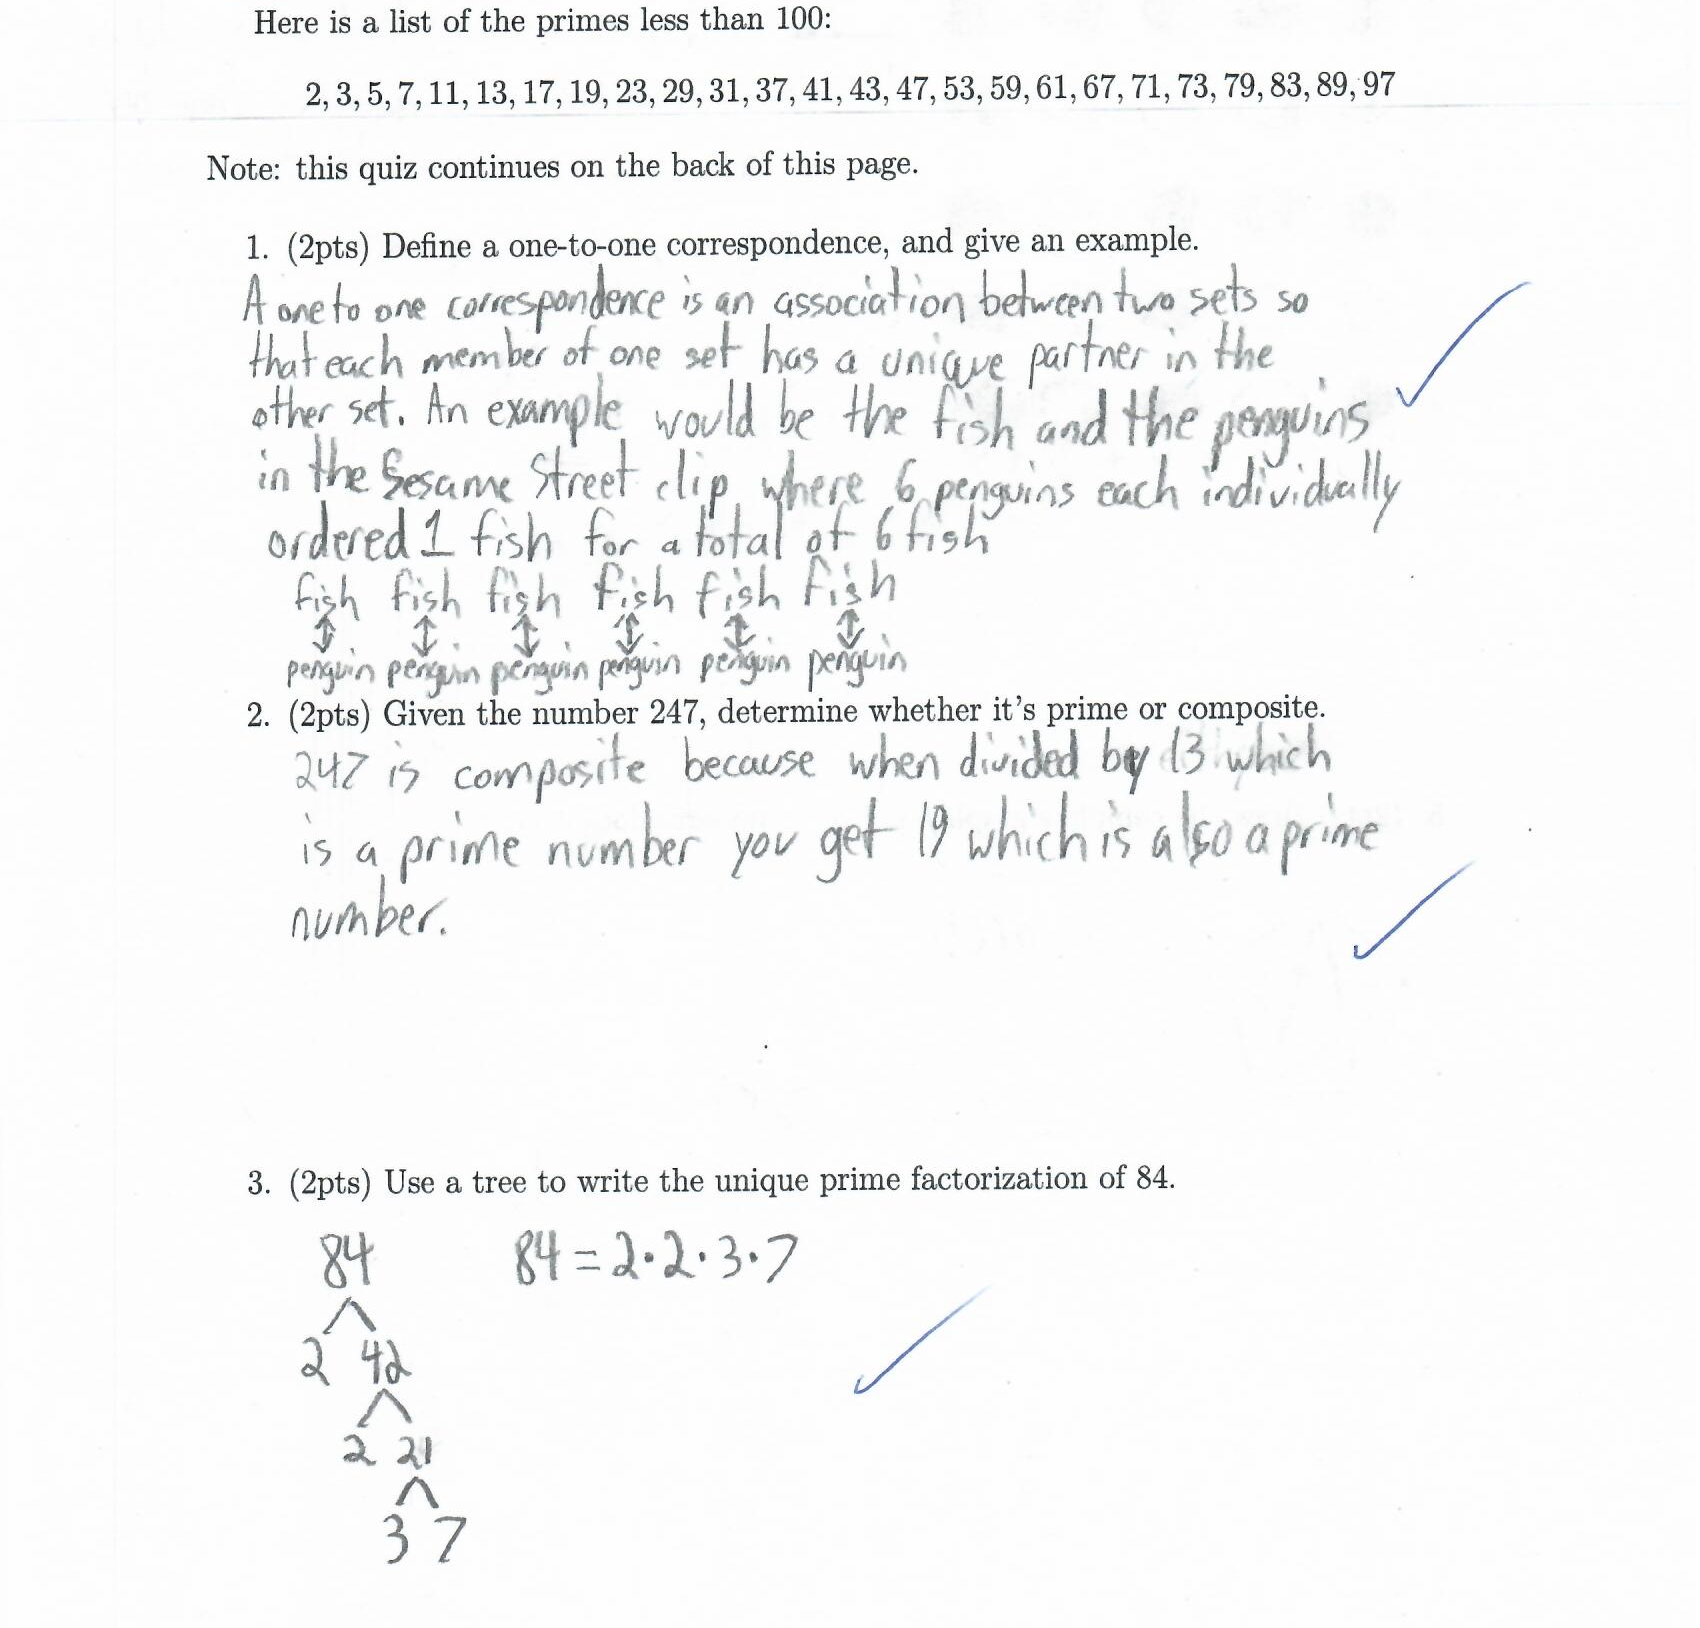 Here is a list of the primes less than 100:
2, 3, 5, 7, 11, 13, 17, 19, 23, 29, 31, 37, 41, 43, 47, 53, 59, 61, 67, 71, 73, 79, 83, 89, 97
Note: this quiz continues on the back of this page.
1. (2pts) Define a one-to-one correspondence, and give an example.
A one to one correspondence is an association between two sets so
that each member of one set has a unique partner in the
other set. An example would be the fish and the penguins
in the Sesame Street clip where 6 penguins each individually
ordered 1 fish for a total of 6 fish
fish fish fish fish fish fish
↕ ↕ ↕ ↕ ↕ ↕
penguin penguin penguin penguin penguin penguin
2. (2pts) Given the number 247, determine whether it's prime or composite.
247 is composite because when divided by 13 which
is a prime number you get 19 which is also a prime
number.
3. (2pts) Use a tree to write the unique prime factorization of 84.
84 84 = 2·2·3·7
2 42
2 21
3 7